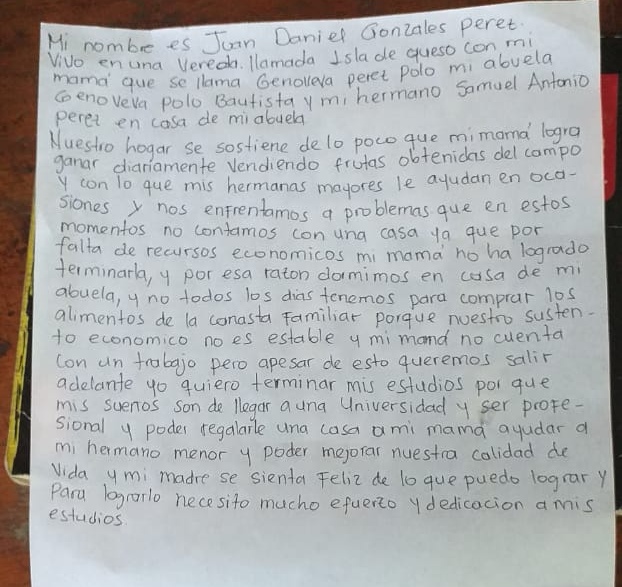 Mi nombre es Juan Daniel Gonzales perez.
Vivo en una Vereda llamada Isla de queso con mi
mamá que se llama Genoveva perez Polo mi abuela
Genoveva Polo Bautista y mi hermano Samuel Antonio
perez en casa de mi abuela
Nuestro hogar se sostiene de lo poco que mi mamá logra
ganar diariamente vendiendo frutas obtenidas del campo
y con lo que mis hermanas mayores le ayudan en oca-
siones y nos enfrentamos a problemas que en estos
momentos no contamos con una casa ya que por
falta de recursos economicos mi mamá no ha logrado
terminarla, y por esa razon dormimos en casa de mi
abuela, y no todos los dias tenemos para comprar los
alimentos de la canasta familiar porque nuestro susten-
to economico no es estable y mi mamá no cuenta
con un trabajo pero apesar de esto queremos salir
adelante yo quiero terminar mis estudios por que
mis sueños son de llegar a una Universidad y ser profe-
sional y poder regalarle una casa a mi mamá ayudar a
mi hermano menor y poder mejorar nuestra calidad de
Vida y mi madre se sienta Feliz de lo que puedo lograr y
Para lograrlo necesito mucho efuerzo y dedicacion a mis
estudios